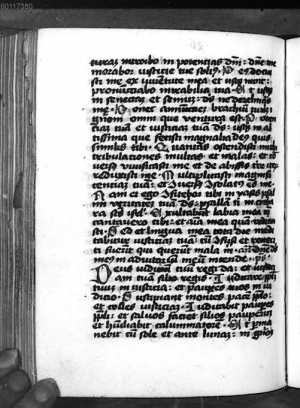 60117380
turas introibo in potentias dni: dne me
morabor iusticie tue solius. Deus docui
sti me ex iuventute mea et usque nunc:
pronunctiabo mirabilia tua. Et usque
in senectam et senium: ds ne derelinquas
me. Donec annuntiem brachium tuum:
gnioni omni que ventura est. Poten
tiam tua et iusticiam tua ds: usque in al
tissima que fecisti magnalia ds quis
similis tibi. Quantas ostendisti michi
tribulationes multas et malas: et co
versus vivificasti me et de abyssis terre iteru
reduxisti me. Multiplicasti magnifi
centiam tua: et conversus consolatus es me.
Nam et ego confitebor tibi in vasis psalmi
veritatem tua: ds psallam tibi in cytha
ra scs isrl. Exultabunt labia mea cum
cantavero tibi: et aia mea qua redemi
sti. Sed et lingua mea tota die medi
tabitur iusticiam tua: cum confusi et reveri
ti fuerint qui querunt mala michi.
Deus iudicium tuum regi da: et iusticia
tuam filio regis. Iudicare populu
tuum in iusticia: et pauperes tuos in iu
dicio. Suscipiant montes pacem populo:
et colles iusticiam. Iudicabit pauperes
populi: et salvos faciet filios pauperum
et humiliabit calumniatore. Et perma
nebit cum sole et ante lunam: in gnione